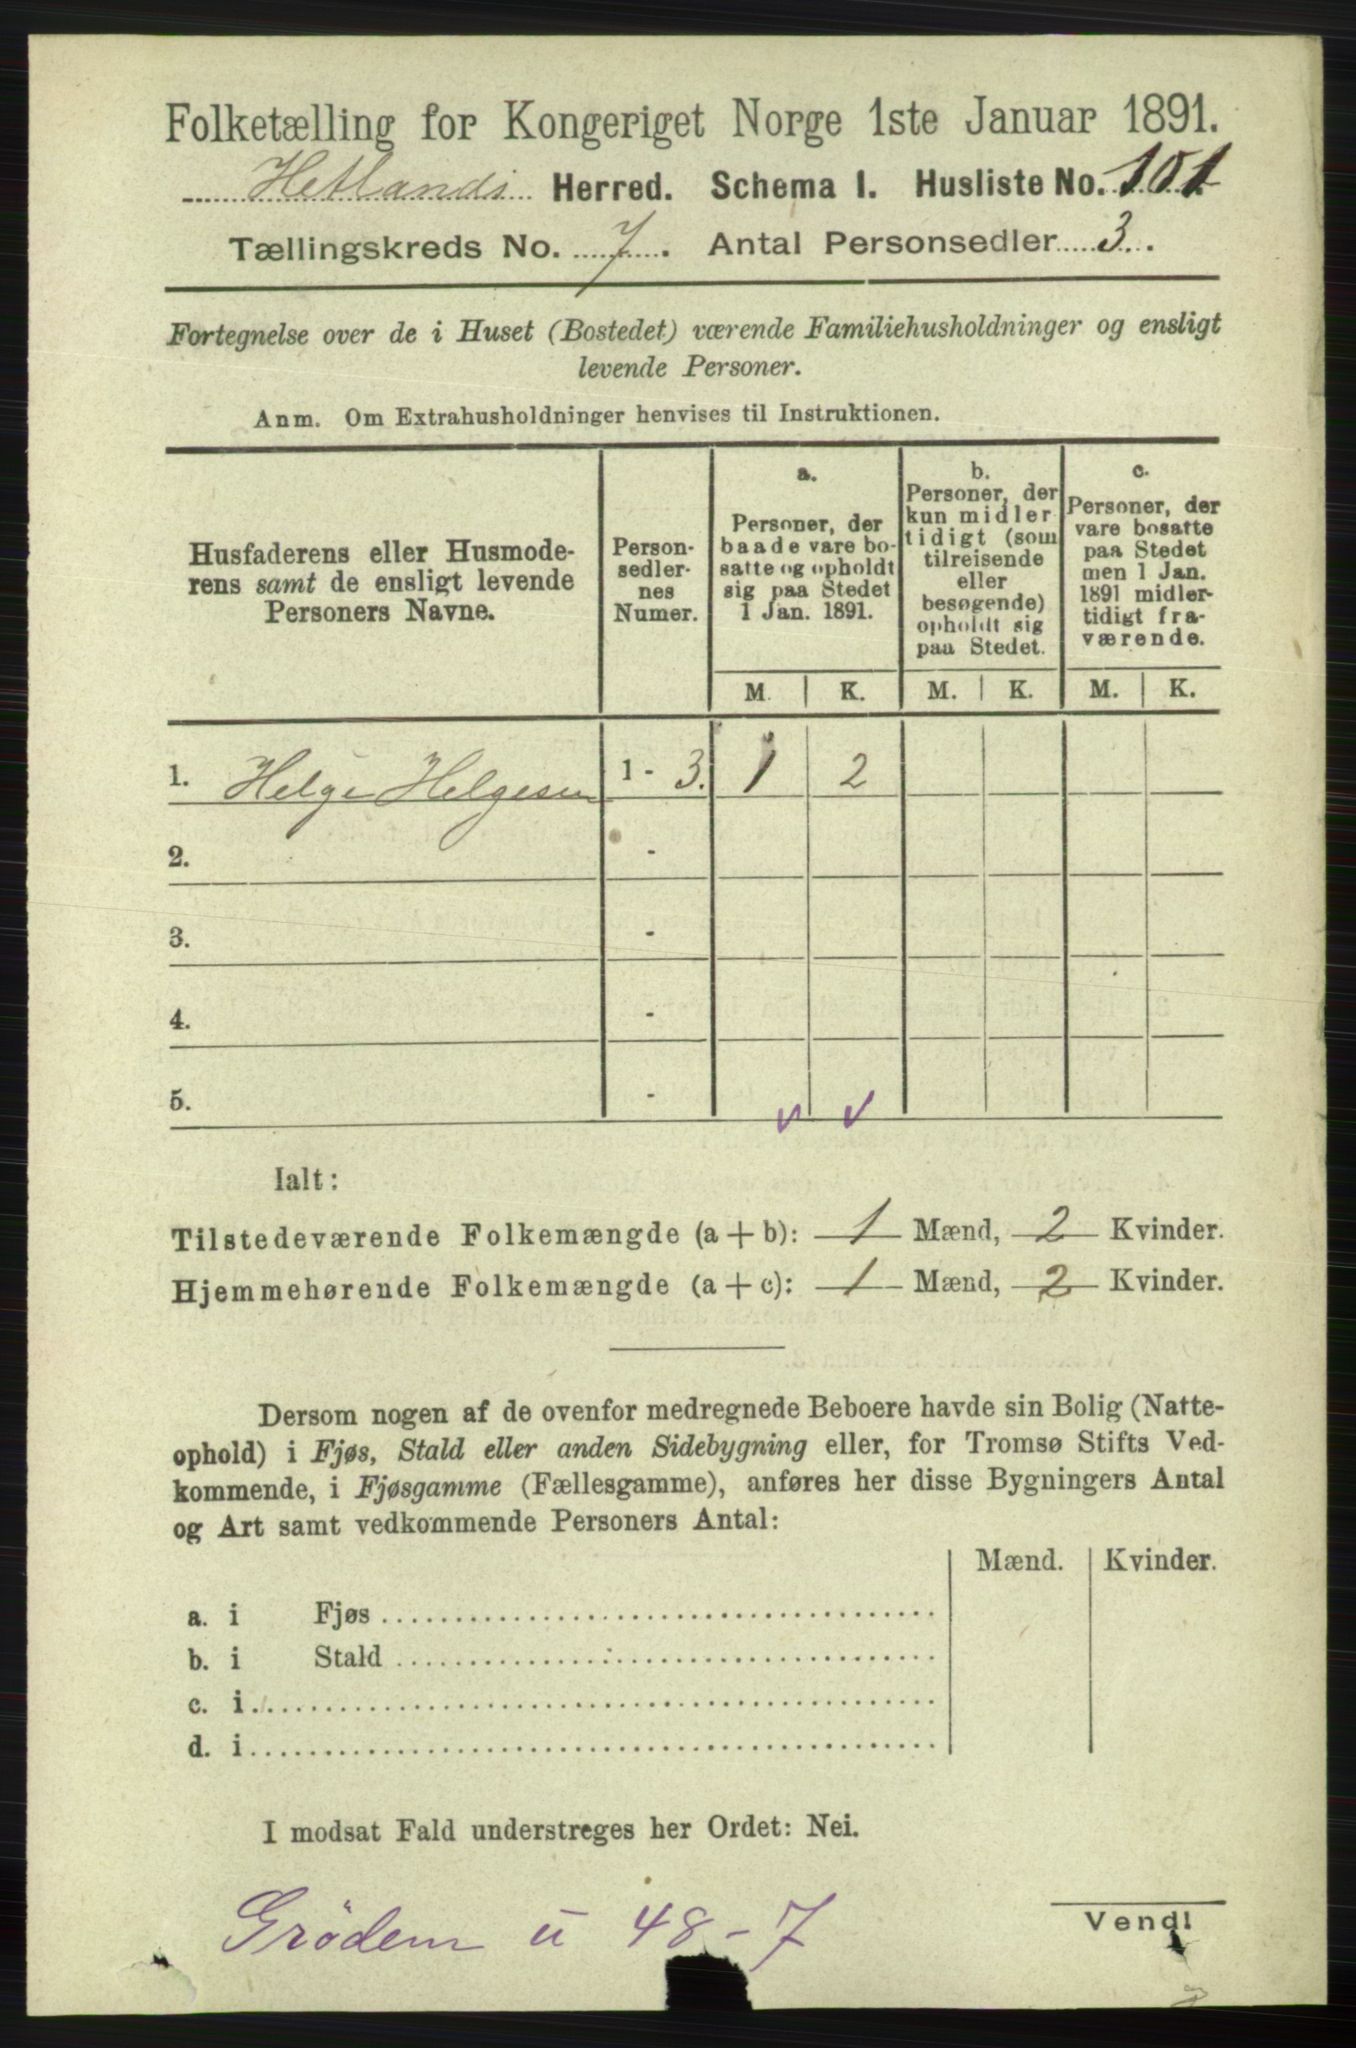 Folketælling for Kongeriget Norge 1ste Januar 1891.
Hetlands Herred. Schema I. Husliste No. 101
Tællingskreds No. 7. Antal Personsedler 3.
Fortegnelse over de i Huset (Bostedet) værende Familiehusholdninger og ensligt
levende Personer.
Anm. Om Extrahusholdninger henvises til Instruktionen.
Husfaderens eller Husmode-
rens samt de ensligt levende
Personers Navne.
Person-
sedler-
nes
Numer.
a.
Personer, der
baade vare bo-
satte og opholdt
sig paa Stedet
1 Jan. 1891.
b.
Personer, der
kun midler
tidigt (som
tilreisende
eller
besøgende)
opholdt sig
paa Stedet.
c.
Personer, der
vare bosatte
paa Stedet
men 1 Jan.
1891 midler-
tidigt fra-
værende.
M. K. M. K. M. K.
1. Helge Helgesen 1 - 3. 1 2
2. -
3. -
4. -
5. -
Ialt:
Tilstedeværende Folkemængde (a + b): 1 Mænd, 2 Kvinder.
Hjemmehørende Folkemængde (a + c): 1 Mænd, 2 Kvinder.
Dersom nogen af de ovenfor medregnede Beboere havde sin Bolig (Natte-
ophold) i Fjøs, Stald eller anden Sidebygning eller, for Tromsø Stifts Ved-
kommende, i Fjøsgamme (Fællesgamme), anføres her disse Bygningers Antal
og Art samt vedkommende Personers Antal:
Mænd. Kvinder.
a. i Fjøs
b. i Stald
c. i
d. i
I modsat Fald understreges her Ordet: Nei.
Grödem u 48-7
Vend!